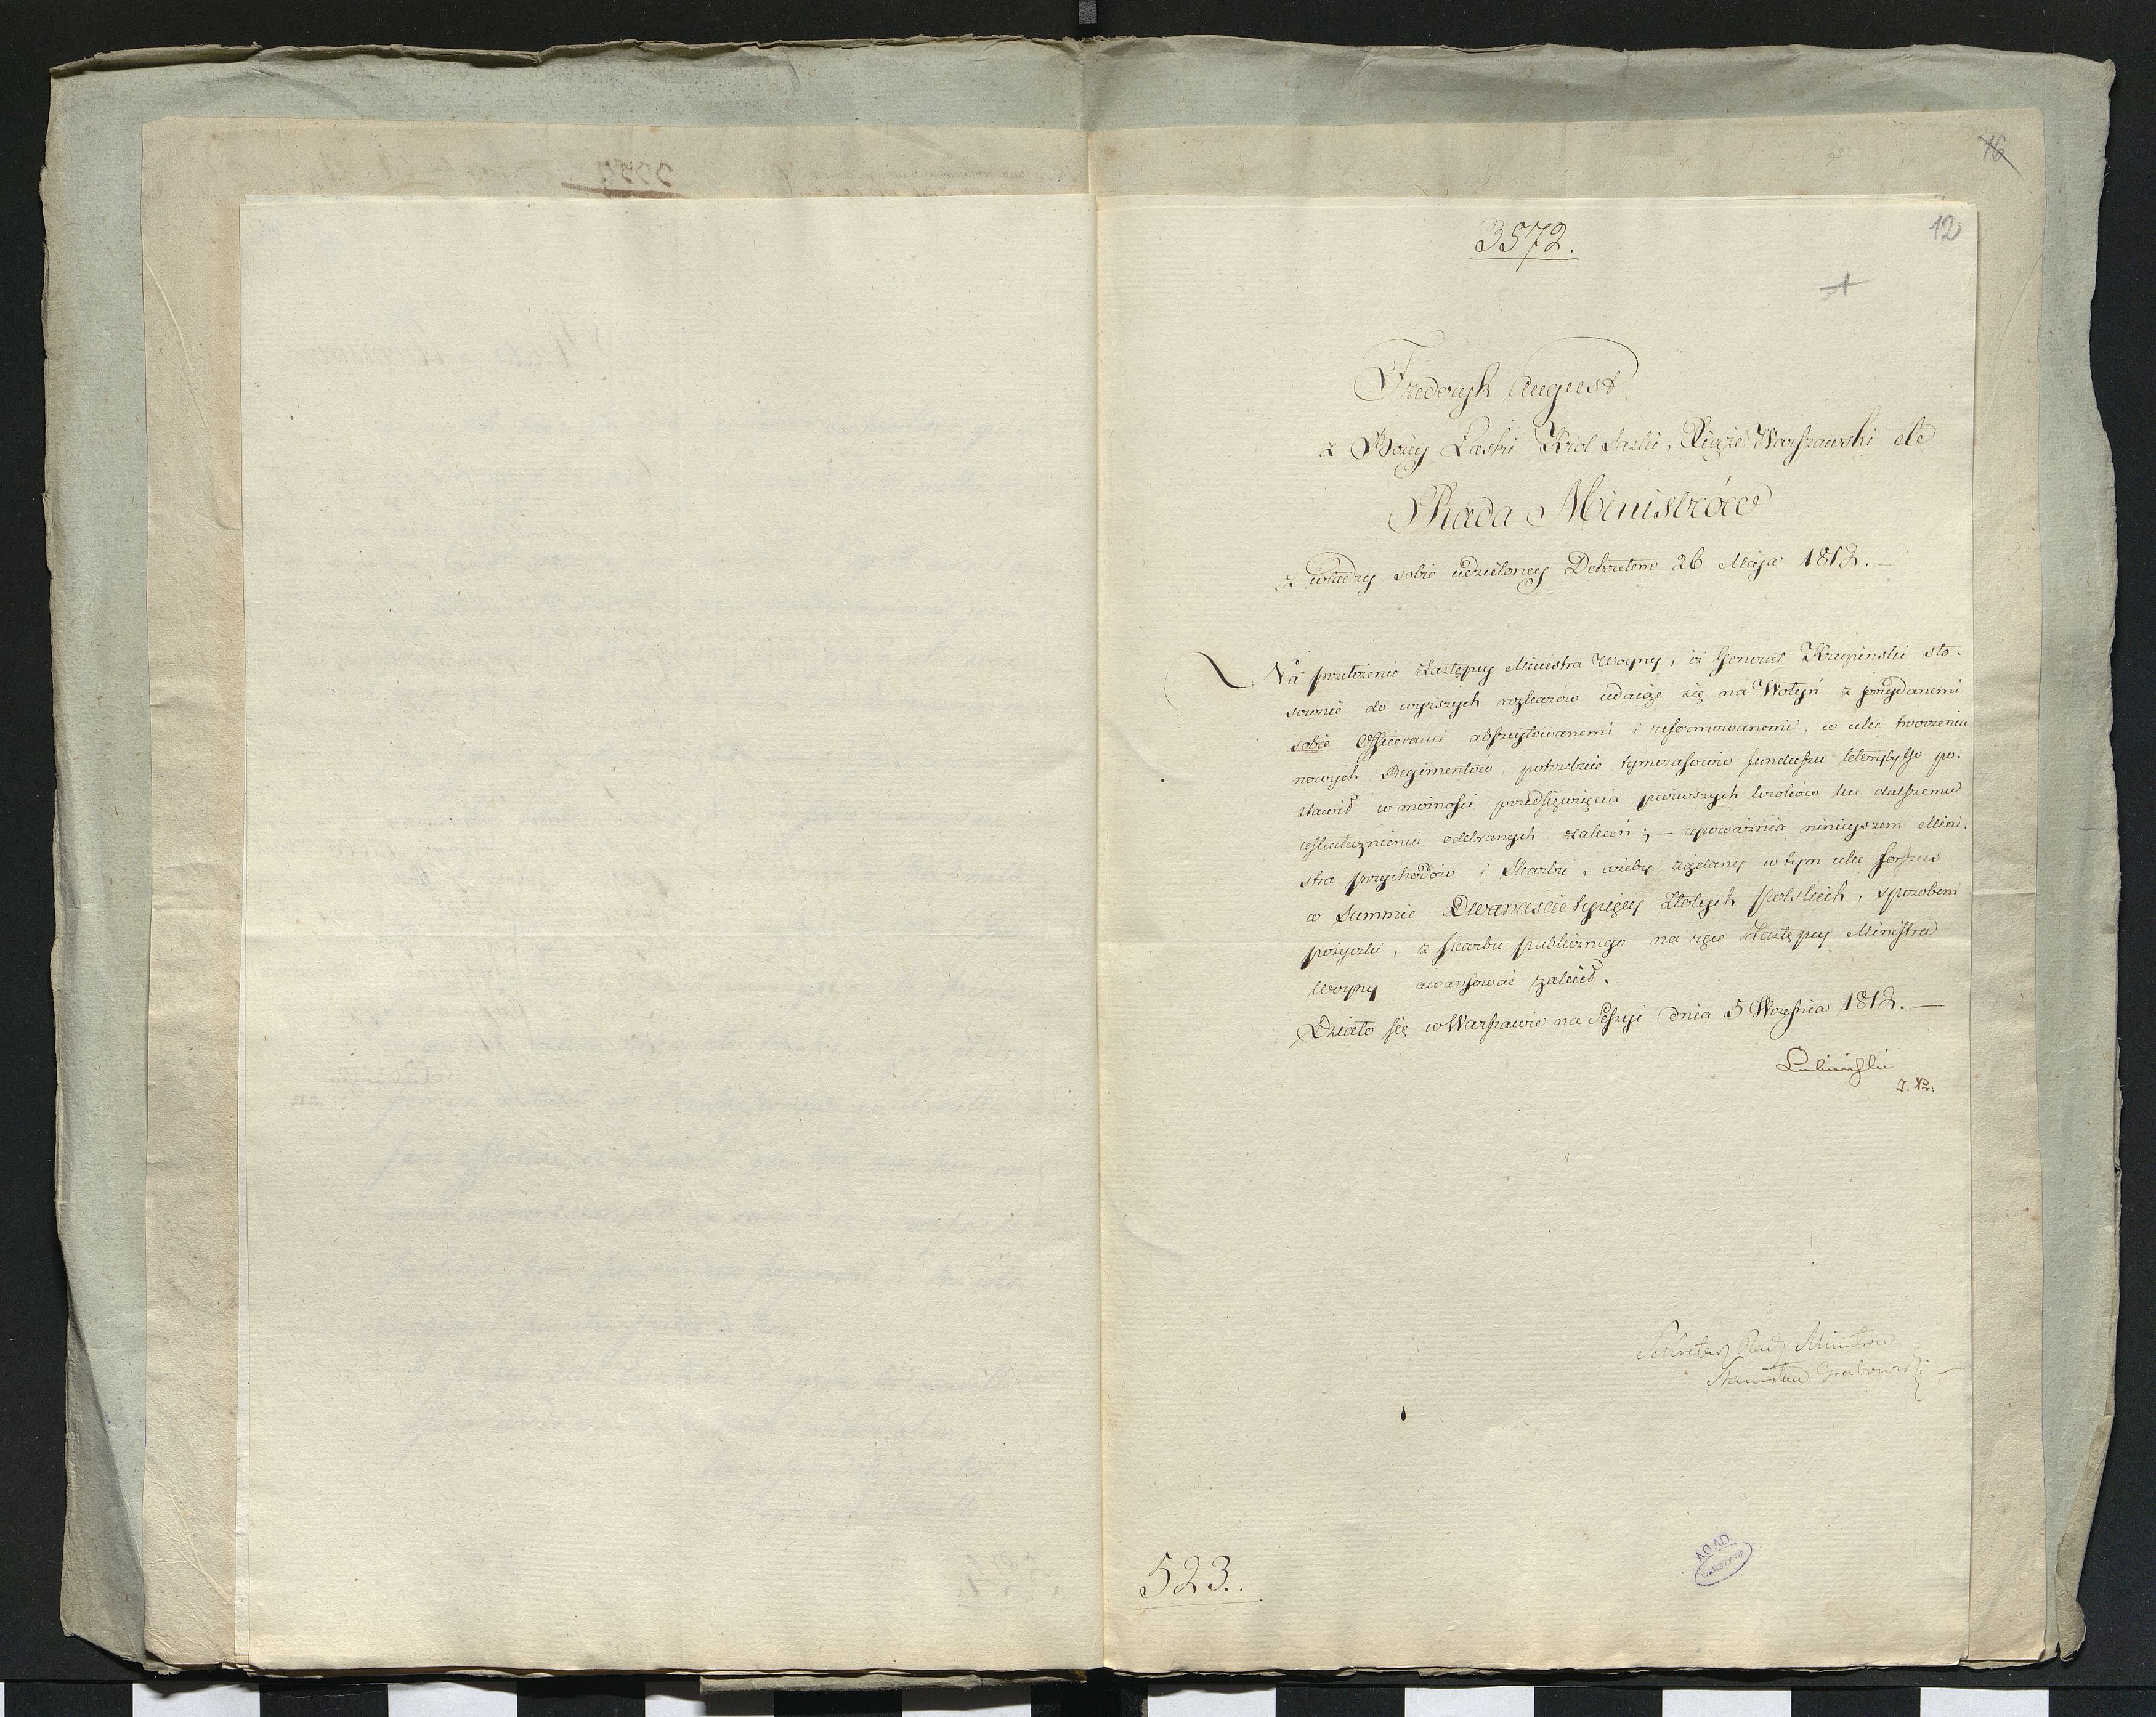 16
12
3572.
Frederyk August
z Bożey Łaski Król Saski, Xiąże Warszawski etc
Rada Ministrów
z władzy sobie udzieloney Dekretem 26 Maja 1812. —
Na przełożenie Zastępcy Ministra Woyny, iż Generał Kropinski sto-
sownie do wyższych rozkazów udaiąc się na Wołyń z przydanemi
sobie Officerami abszytowanemi i reformowanemi, w celu tworzenia
nowych Regimentow, potrzebuie tymczasowie funduszu któryby Go po-
stawił w możności przedsięwzięcia pierwszych kroków ku dalszemu
uskutecznieniu odebranych zaleceń; — upoważnia ninieyszem Mini-
stra przychodów i Skarbu, ażeby żądany w tym celu forszus
w Summie Dwanaście tysięcy Złotych Polskich, sposobem
pożyczki, z Skarbu publicznego na ręce Zastępcy Ministra
Woyny awansować zalecił.
Działo się w Warszawie na Sessyi dnia 5 Września 1812. —
Lubieński
Sekretarz Rady Ministrów
Stanisław Grabowski
523.
AGAD
WARSZAWA